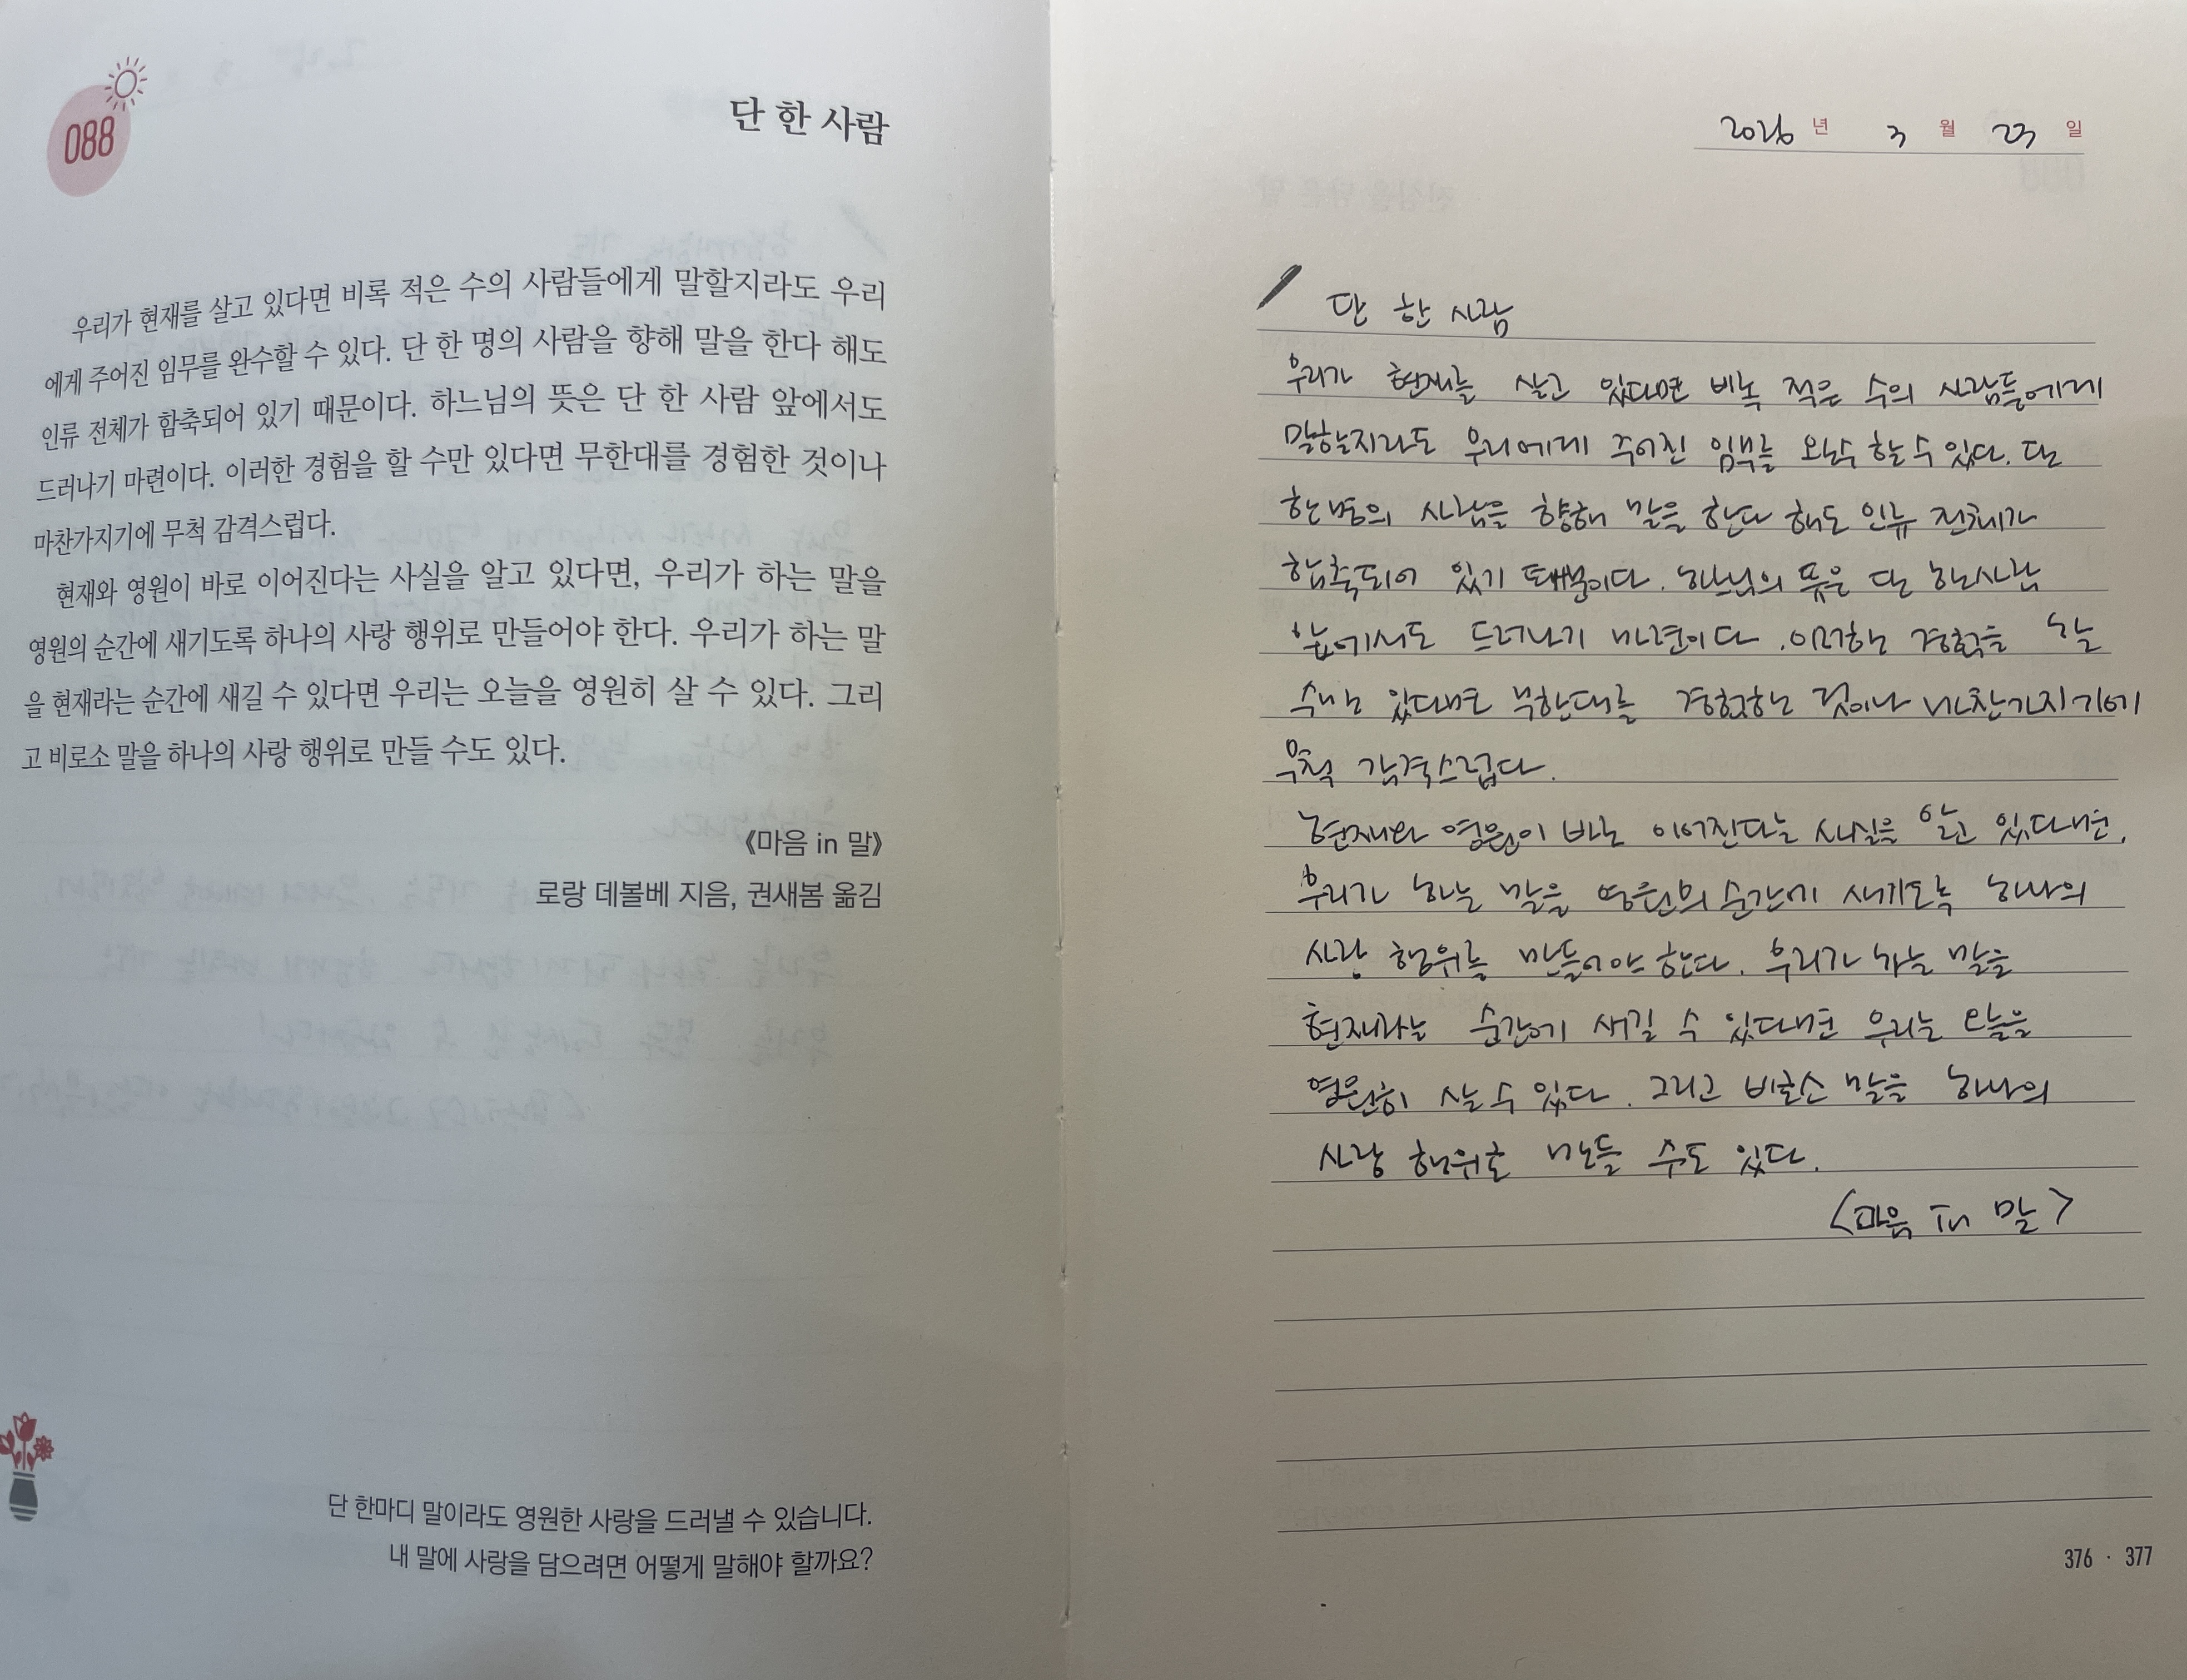 088
단 한 사람
우리가 현재를 살고 있다면 비록 적은 수의 사람들에게 말할지라도 우리
에게 주어진 임무를 완수할 수 있다. 단 한 명의 사람을 향해 말을 한다 해도
인류 전체가 함축되어 있기 때문이다. 하느님의 뜻은 단 한 사람 앞에서도
드러나기 마련이다. 이러한 경험을 할 수만 있다면 무한대를 경험한 것이나
마찬가지기에 무척 감격스럽다.
현재와 영원이 바로 이어진다는 사실을 알고 있다면, 우리가 하는 말을
영원의 순간에 새기도록 하나의 사랑 행위로 만들어야 한다. 우리가 하는 말
을 현재라는 순간에 새길 수 있다면 우리는 오늘을 영원히 살 수 있다. 그리
고 비로소 말을 하나의 사랑 행위로 만들 수도 있다.
《마음 in 말》
로랑 데볼베 지음, 권새봄 옮김
단 한마디 말이라도 영원한 사랑을 드러낼 수 있습니다.
내 말에 사랑을 담으려면 어떻게 말해야 할까요?
2026 년 3 월 23 일
단 한 사람
우리가 현재를 살고 있다면 비록 적은 수의 사람들에게
말할지라도 우리에게 주어진 임무를 완수 할 수 있다. 단
한 명의 사람을 향해 말을 한다 해도 인류 전체가
함축되어 있기 때문이다. 하느님의 뜻은 단 한 사람
앞에서도 드러나기 마련이다. 이러한 경험을 할
수만 있다면 무한대를 경험한 것이나 마찬가지기에
무척 감격스럽다.
현재와 영원이 바로 이어진다는 사실을 알고 있다면,
우리가 하는 말을 영원의 순간에 새기도록 하나의
사랑 행위로 만들어야 한다. 우리가 하는 말을
현재라는 순간에 새길 수 있다면 우리는 오늘을
영원히 살 수 있다. 그리고 비로소 말을 하나의
사랑 행위로 만들 수도 있다.
<마음 in 말>
376 · 377